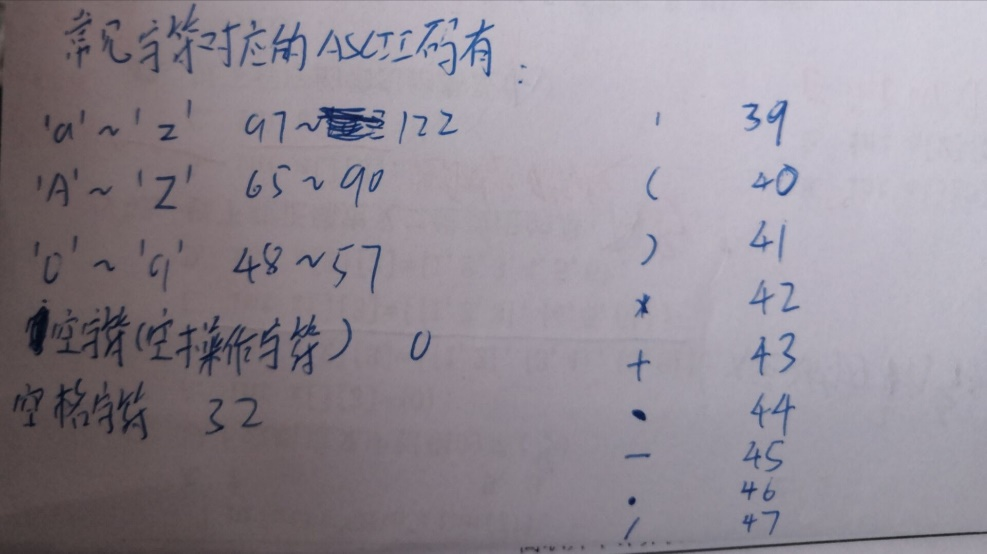 常见字符对应的ASCII码有:
'a'~'z' 97~122
'A'~'Z' 65~90
'0'~'9' 48~57
空字符(空操作字符) 0
空格字符 32
' 39
( 40
) 41
* 42
+ 43
• 44
- 45
. 46
/ 47